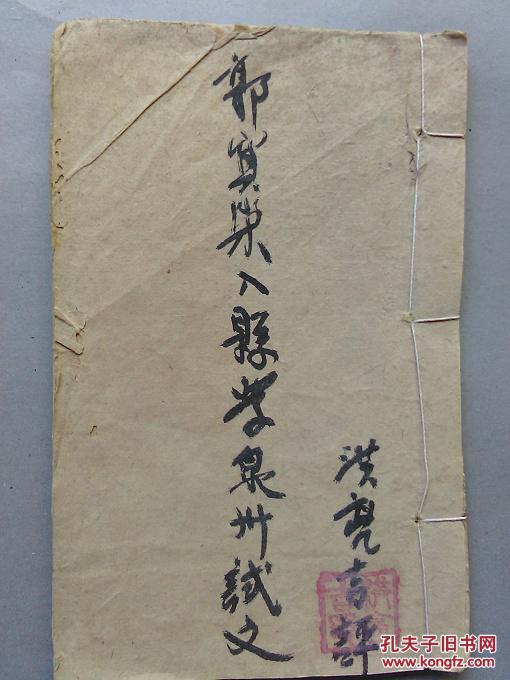 郭賓渠入縣學泉州試文
洪亮吉評
孔夫子旧书网
www.kongfz.com